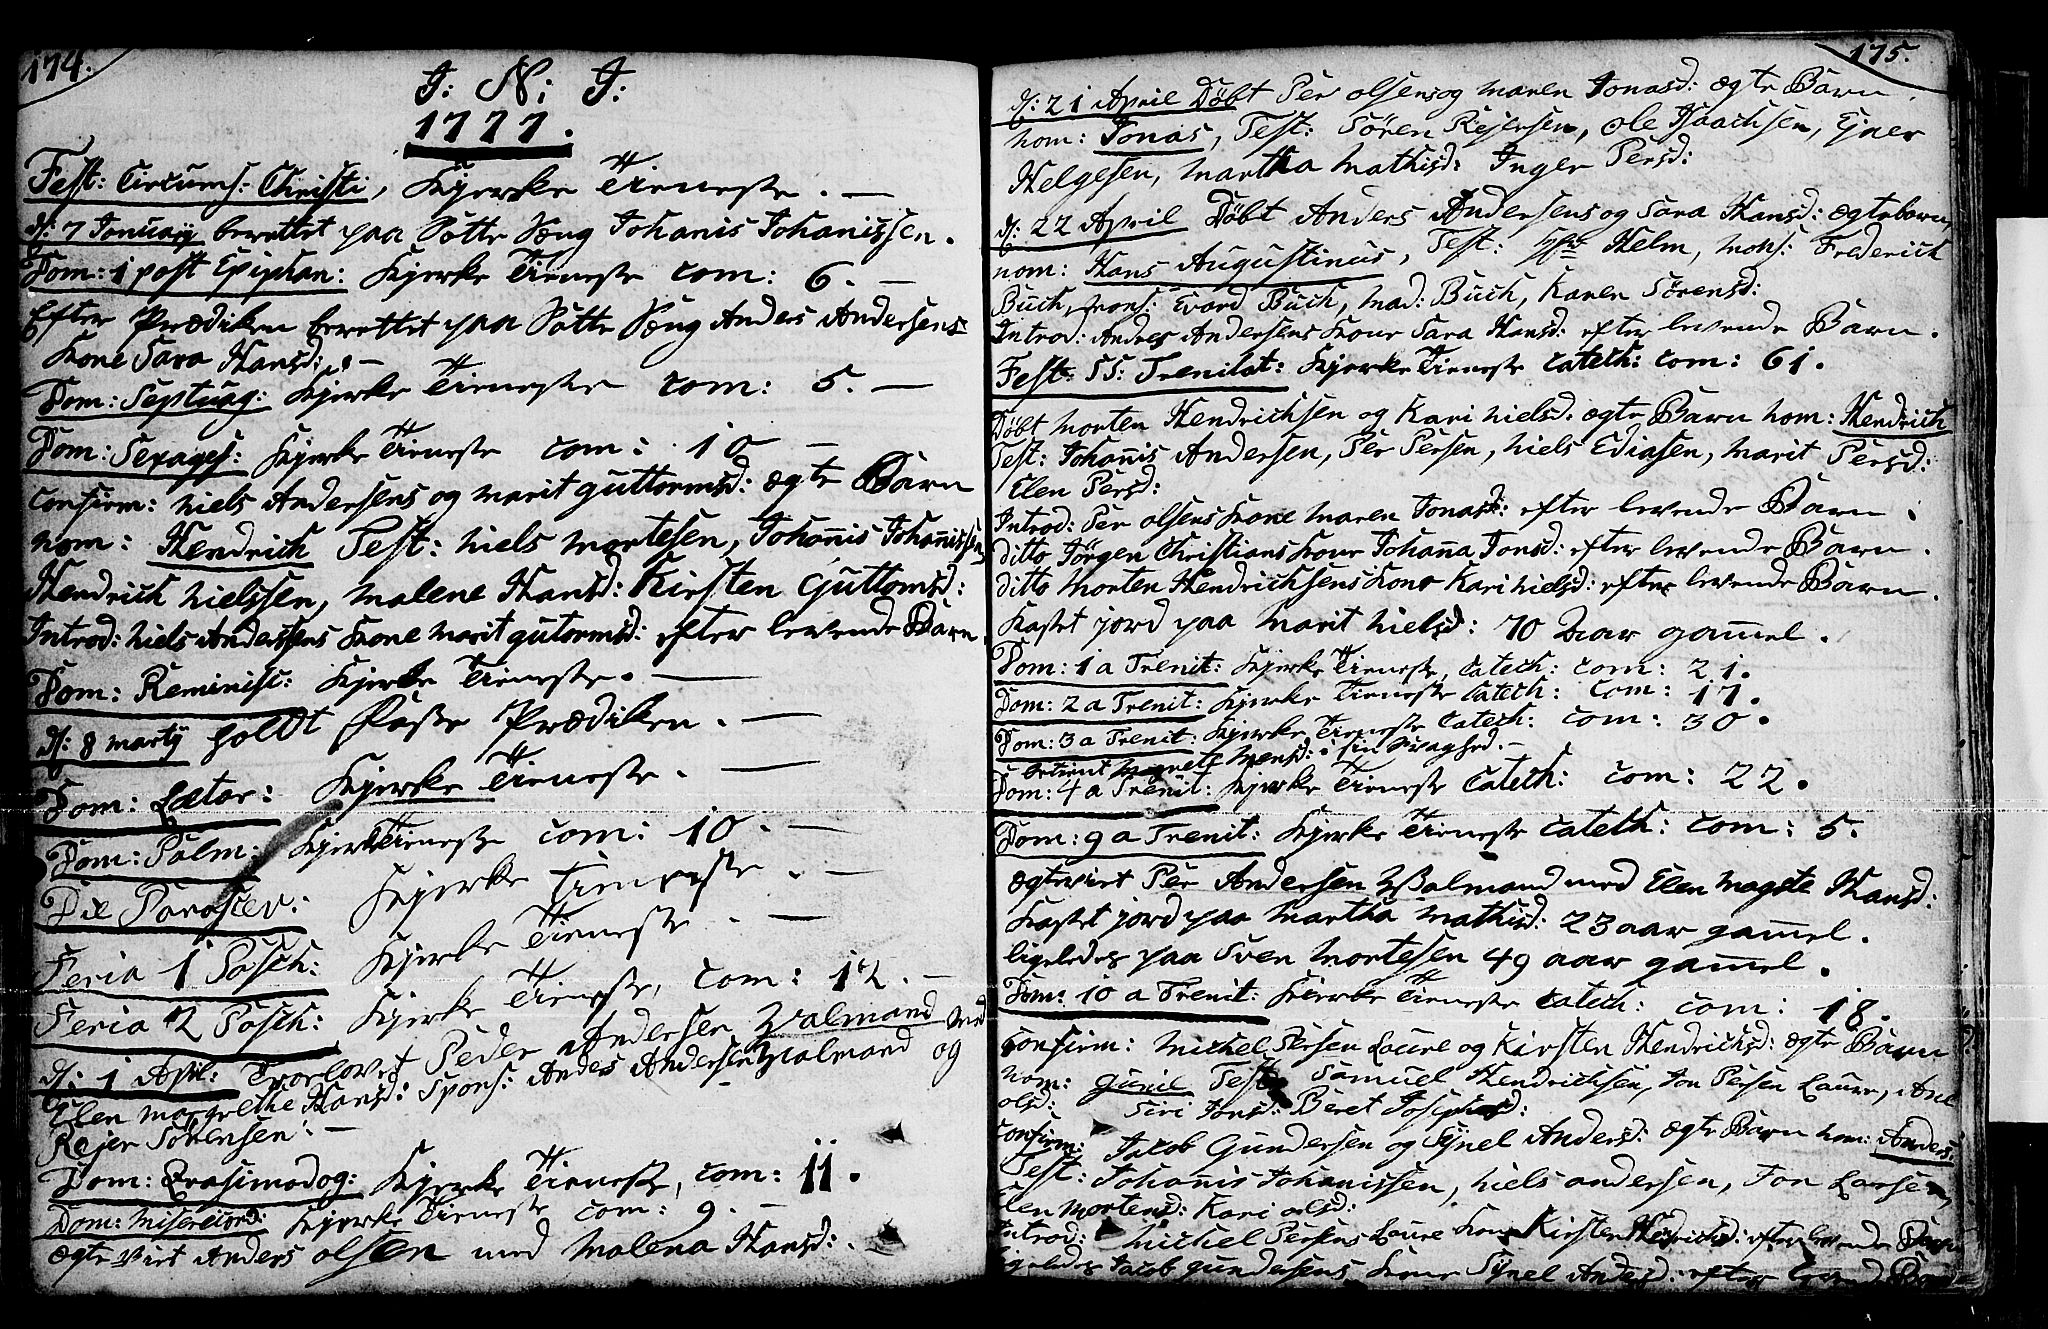 174.
J: N: J:
1777.
Fest: Circums: Christi, Kjerke Tieneste. —
d: 7 Januarij berettet paa Sotte Sæng Johanis Johanissen.
Dom: 1 post Epiphan: Kjerke Tieneste com: 6. —
Efter Prædiken berettet paa Sotte Sæng Anders Andersens
Kone Sara Hansd: . —
Dom: Septuag: Kjerke Tieneste com: 5. —
Dom: Sexages: Kjerke Tieneste com: 10 —
Confirm: Niels Andersens og Marit Guttormsd: ægte Barn
nom: Hendrich Test: Niels Mortesen, Johañis Johañissen,
Hendrich Nielssen, Malene Hansd: Kirsten Guttomsd:
Introd: Niels Anderssens Kone Marit Gutormsd: efter levende Barn.
Dom: Reminisc: Kjerke Tieneste. —
d: 8 Martij holdt Passe Prædiken. —
Dom: Lætar: Kjerke Tieneste. —
Dom: Palm: Kjerke Tieneste com: 10. —
Die Parascev: Kjerke Tieneste. —
Feria 1 Pasch: Kjerke Tieneste. —
Feria 2 Pasch: Kjerke Tieneste, com: 12. —
d: 1 April: Trolovet Peder Andersen Walmand med
Elen Margrethe Hansd: Spons: Anders Andersen Walmand og
Rejer Sörensen: —
Dom: Qvasimodog: Kjerke Tieneste, com: 11.
Dom: Misericord: Kjerke Tieneste com: 9. —
ægte viet Anders Olsen med Malena Hansd: . —
175.
d: 21 April Döbt Per Olsens og Maren Jonasd: ægte Barn.
nom: Jonas, Test: Sören Rejersen, Ole Isaachsen, Ejner
Helgesen, Martha Mathisd: Inger Persd:
d: 22 April Döbt Anders Andersens og Sara Hansd: ægte barn,
nom: Hans Augustinus, Test: Hr Helm, Mons: Frederich
Buch, Mons: Evard Buch, Mad: Buch, Karen Sörensd:
Introd: Andres Andersens Kone Sara Hansd: efter levende Barn.
Fest: SS: Trenitat: Kjerke Tieneste Catech: com: 61.
Döbt Morten Hendrichsen og Kari Nielsd: ægte Barn nom: Hendrich
Test: Johañis Andersen, Per Persen, Niels Ediasen, Marit Persd:
Elen Persd:
Introd: Per Olsens Kone Maren Jonasd: efter levende Barn.
ditto Jörgen Christians Kone Johaña Jonsd: efter levende Barn.
ditto Morten Hendrichsens Kone Kari Nielsd: efter levende Barn.
Kastet jord paa Marit Nielsd: 70 Aar gam̄el.
Dom: 1 a Trenit: Kjerke Tieneste, Catech: com: 21.
Dom: 2 a Trenit: Kjerke Tieneste Catech: com: 17.
Dom: 3 a Trenit: Kjerke Tieneste Catech: com: 30.
betient Hansd: i sin Svaghed. —
Dom: 4 a Trenit: Kjerke Tieneste Catech: com: 22.
Dom: 9 a Trenit: Kjerke Tieneste Catech: com: 5.
ægteviet Per Andersen Walmand med Elen Magrete Hansd:
Kastet jord paa Martha Mathisd: 23 aar gam̄el.
ligeledes paa Sven Mortesen 49 aar gam̄el.
Dom: 10 a Trenit: Kierke Tieneste Catech: com: 18.
Confirm: Michel Persen Laure og Kirsten Hendrichsd: ægte Barn
nom: Gunil Test: Samuel Hendrichsen, Jon Persen Laure, Ane
olsd: Siri Jonsd: Beret Josephsd:
Confirm: Jacob Gundersen og Synel Andersd: ægte Barn nom: Anders,
Test: Johañis Johanissen, Niels andersen, Jon Larsen,
Elen Mortensd: Kari olsd:
Introd: Michel Persens Laure Kone Kirsten Hendrichsd: efter levende Barn
ligeledes Jacob Gundersens Kone Synel Andersd: efter levende Barn